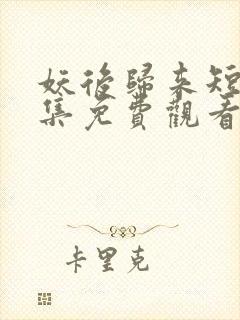 妖後歸来短
集免費觀看
卡里克